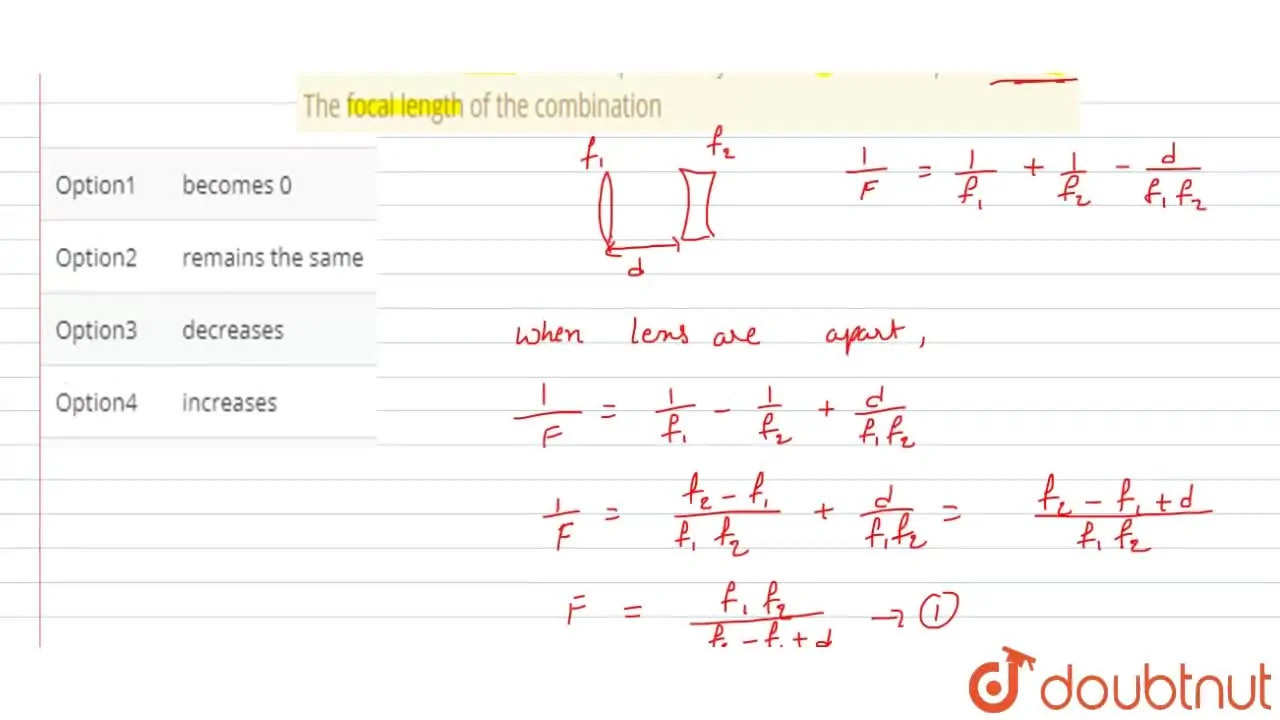 The focal length of the combination
Option1 becomes 0
Option2 remains the same
Option3 decreases
Option4 increases
f₁ f₂
d
1/F = 1/f₁ + 1/f₂ - d/f₁f₂
when lens are apart,
1/F = 1/f₁ - 1/f₂ + d/f₁f₂
1/F = f₂-f₁/f₁ f₂ + d/f₁f₂ = f₂-f₁+d/f₁ f₂
F = f₁ f₂/f₂-f₁+d → ①
doubtnut